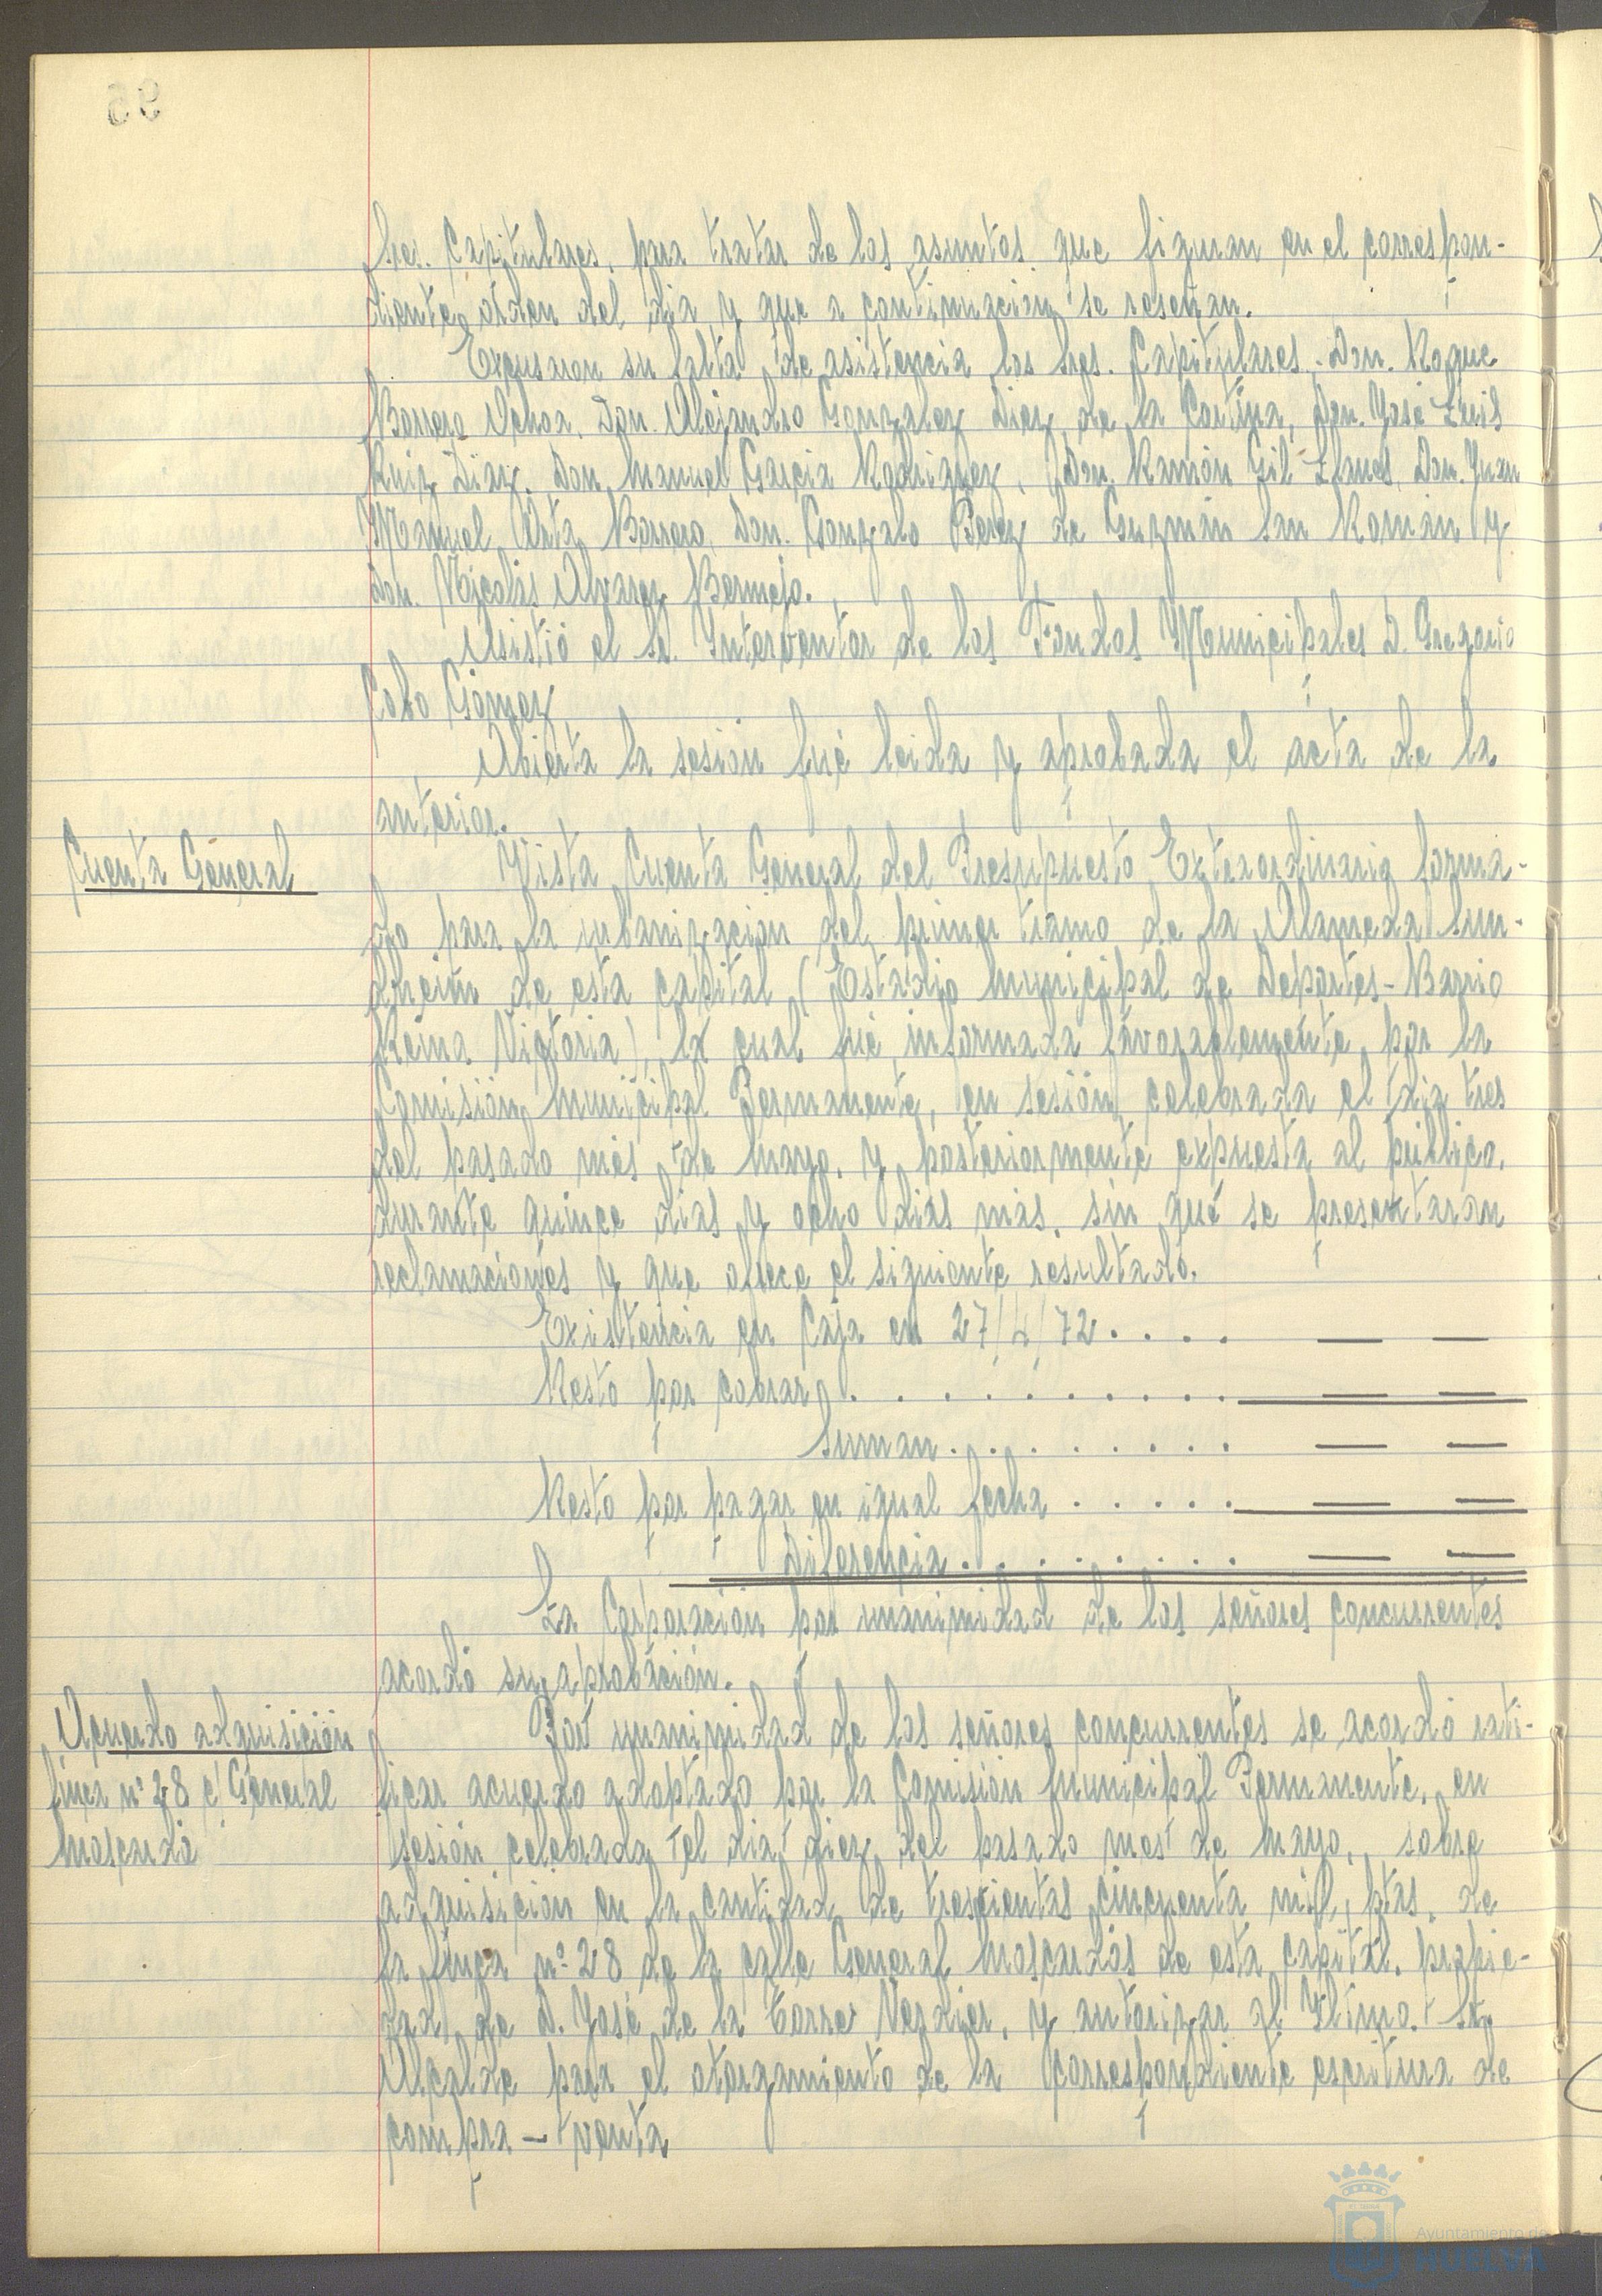 Sres. Capitulares, para tratar de los asuntos que figuran en el correspon-
diente orden del dia y que a continuación se reseñan.
Excusaron su falta de asistencia los Sres. Capitulares. Don Roque
Barrero Ochoa, Don Alejandro Gonzalez Diez de la Cortina, Don José Luis
Ruiz Diaz, Don Manuel Garcia Rodriguez, Don Ramón Gil Llanes, Don Juan
Manuel Anta Barrero, Don Gonzalo Perez de Guzmán San Román y
Don Nicolás Alvarez Bermejo.
Asistió el Sr. Interventor de los Fondos Municipales D. Gregorio
Cobo Gómez
Abierta la sesión fué leida y aprobada el acta de la
anterior.
Cuenta General
Vista Cuenta General del Presupuesto Extraordinario forma-
do para la urbanización del primer tramo de la Alameda Sun-
dheim de esta capital (Estadio Municipal de Deportes-Barrio
Reina Victoria), la cual fué informada favorablemente por la
Comisión Municipal Permanente, en sesión celebrada el dia tres
del pasado mes de Mayo, y posteriormente expuesta al público,
durante quince dias y ocho dias más, sin que se presentarán
reclamaciones y que ofrece el siguiente resultado.
Existencia en Caja en 27/4/72 . . . . — —
Resto por cobrar . . . . . . . . . . — —
Suman . . . . . . . . — —
Resto por pagar en igual fecha . . . . . . — —
Diferencia . . . . . . . . — —
La Corporación por unanimidad de los señores concurrentes
acordó su aprobación.
Acuerdo adquisición
finca nº 28 c/ General
Moscardó
Por unanimidad de los señores concurrentes se acordó rati-
ficar acuerdo adoptado por la Comisión Municipal Permanente, en
sesión celebrada el dia diez del pasado mes de Mayo, sobre
adquisición en la cantidad de trescientas cincuenta mil, ptas. de
la finca nº 28 de la calle General Moscardó de esta capital, propie-
dad de D. José de la Torre Verdier, y autorizar al Iltmo. Sr.
Alcalde para el otorgamiento de la correspondiente escritura de
compra - venta
Ayuntamiento de
HUELVA